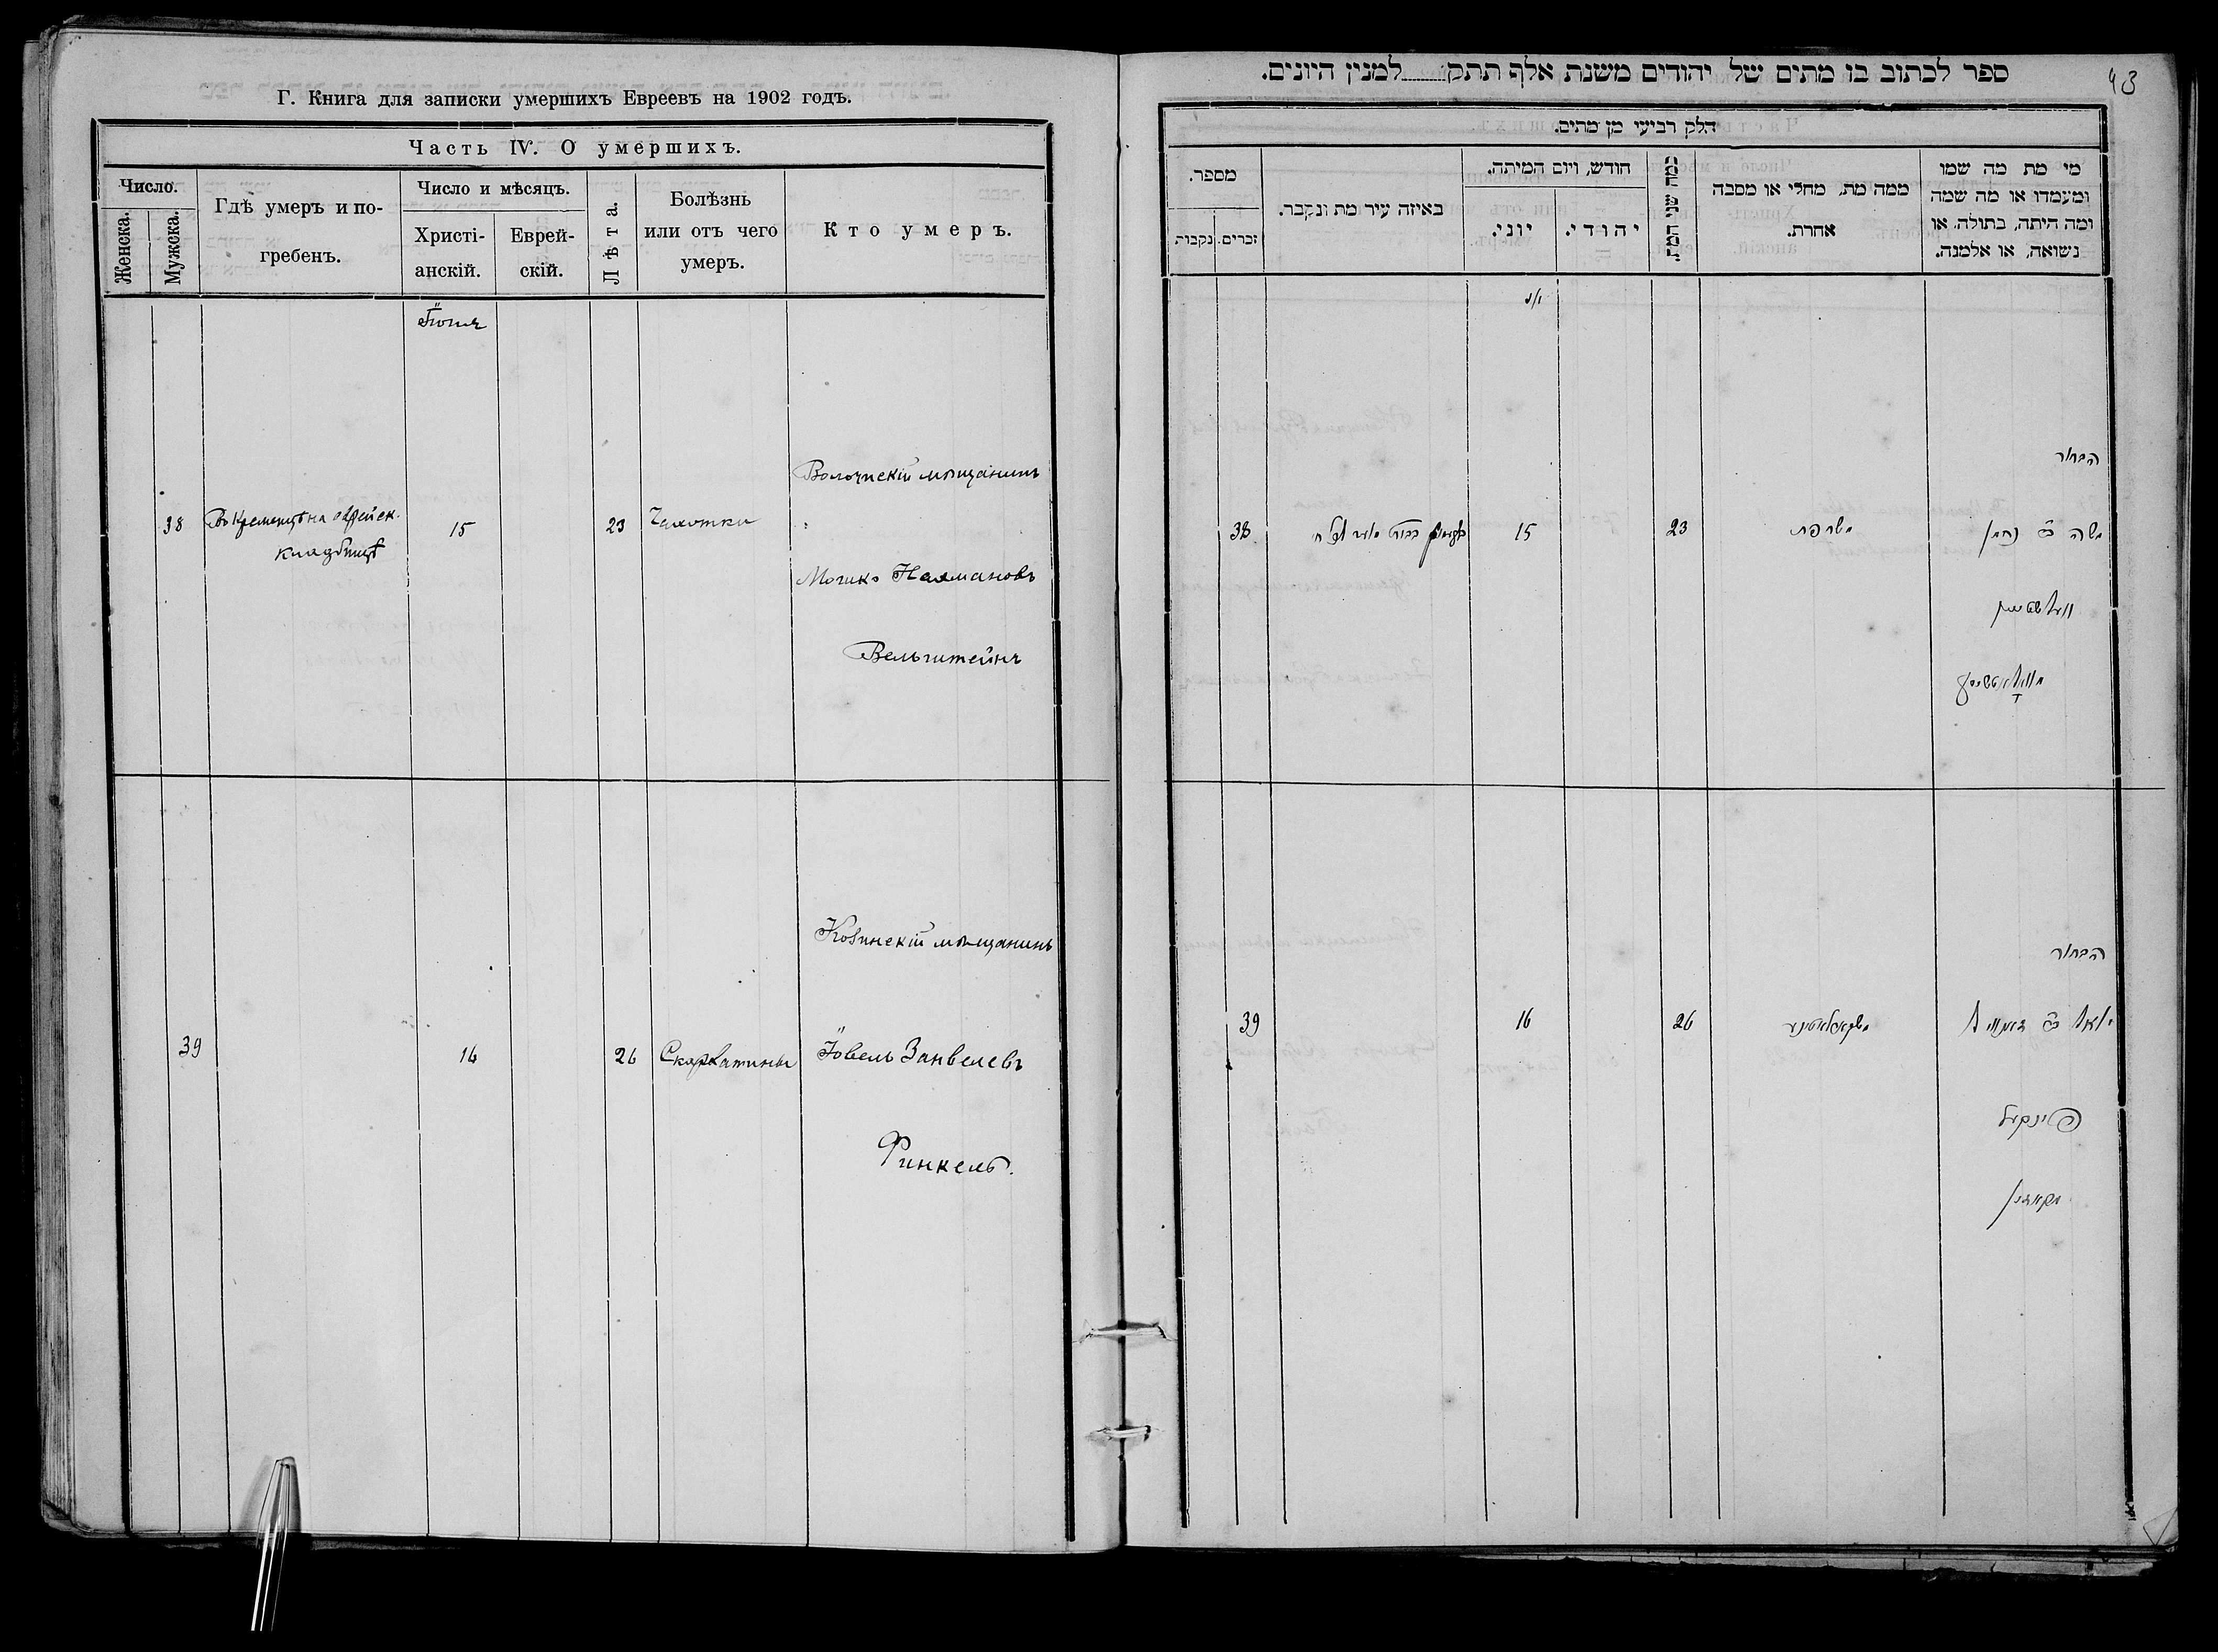 Г. Книга для записки умершихъ Евреевъ на 1902 годъ.
Часть IV. О умершихъ.
Число.
Женска.
Мужска.
Гдѣ умеръ и по-
гребенъ.
Число и мѣсяцъ.
Христі-
анскій.
Еврей-
скій.
Лѣта.
Болѣзнь
или отъ чего
умеръ.
Кто умеръ.
38
Въ Кременцѣ на еврейск.
кладбищѣ
15
23
Чахотки
мѣщанинъ
Мошко Нахмановъ
Вельштейнъ
39
16
26
Скарлатины
Козинскій мѣщанинъ
Іовель Занвелевъ
Финкель.
43
ספר לכתוב בו מתים של יהודים משנת אלף תתק למנין היונים.
חלק רביעי מן מתים.
מי מת מה שמו
ומעמדו או מה שמה
ומה היתה, בתולה, או
נשואה, או אלמנה.
ממה מת, מחלי או מסבה
אחרת.
כמה שני המת.
חודש, ויום המיתה.
יהודי.
יוני.
באיזה עיר מת ונקבר.
מספר.
זכרים.
נקבות.
הבחור
משה ב"ר נחמן
23
15
38
הבחור
26
16
39
פינקעל